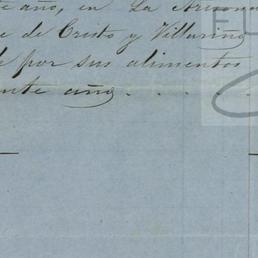 te año, en La Arizona
e de Cristo y Villarino
e por sus alimentos
ente año . . . .